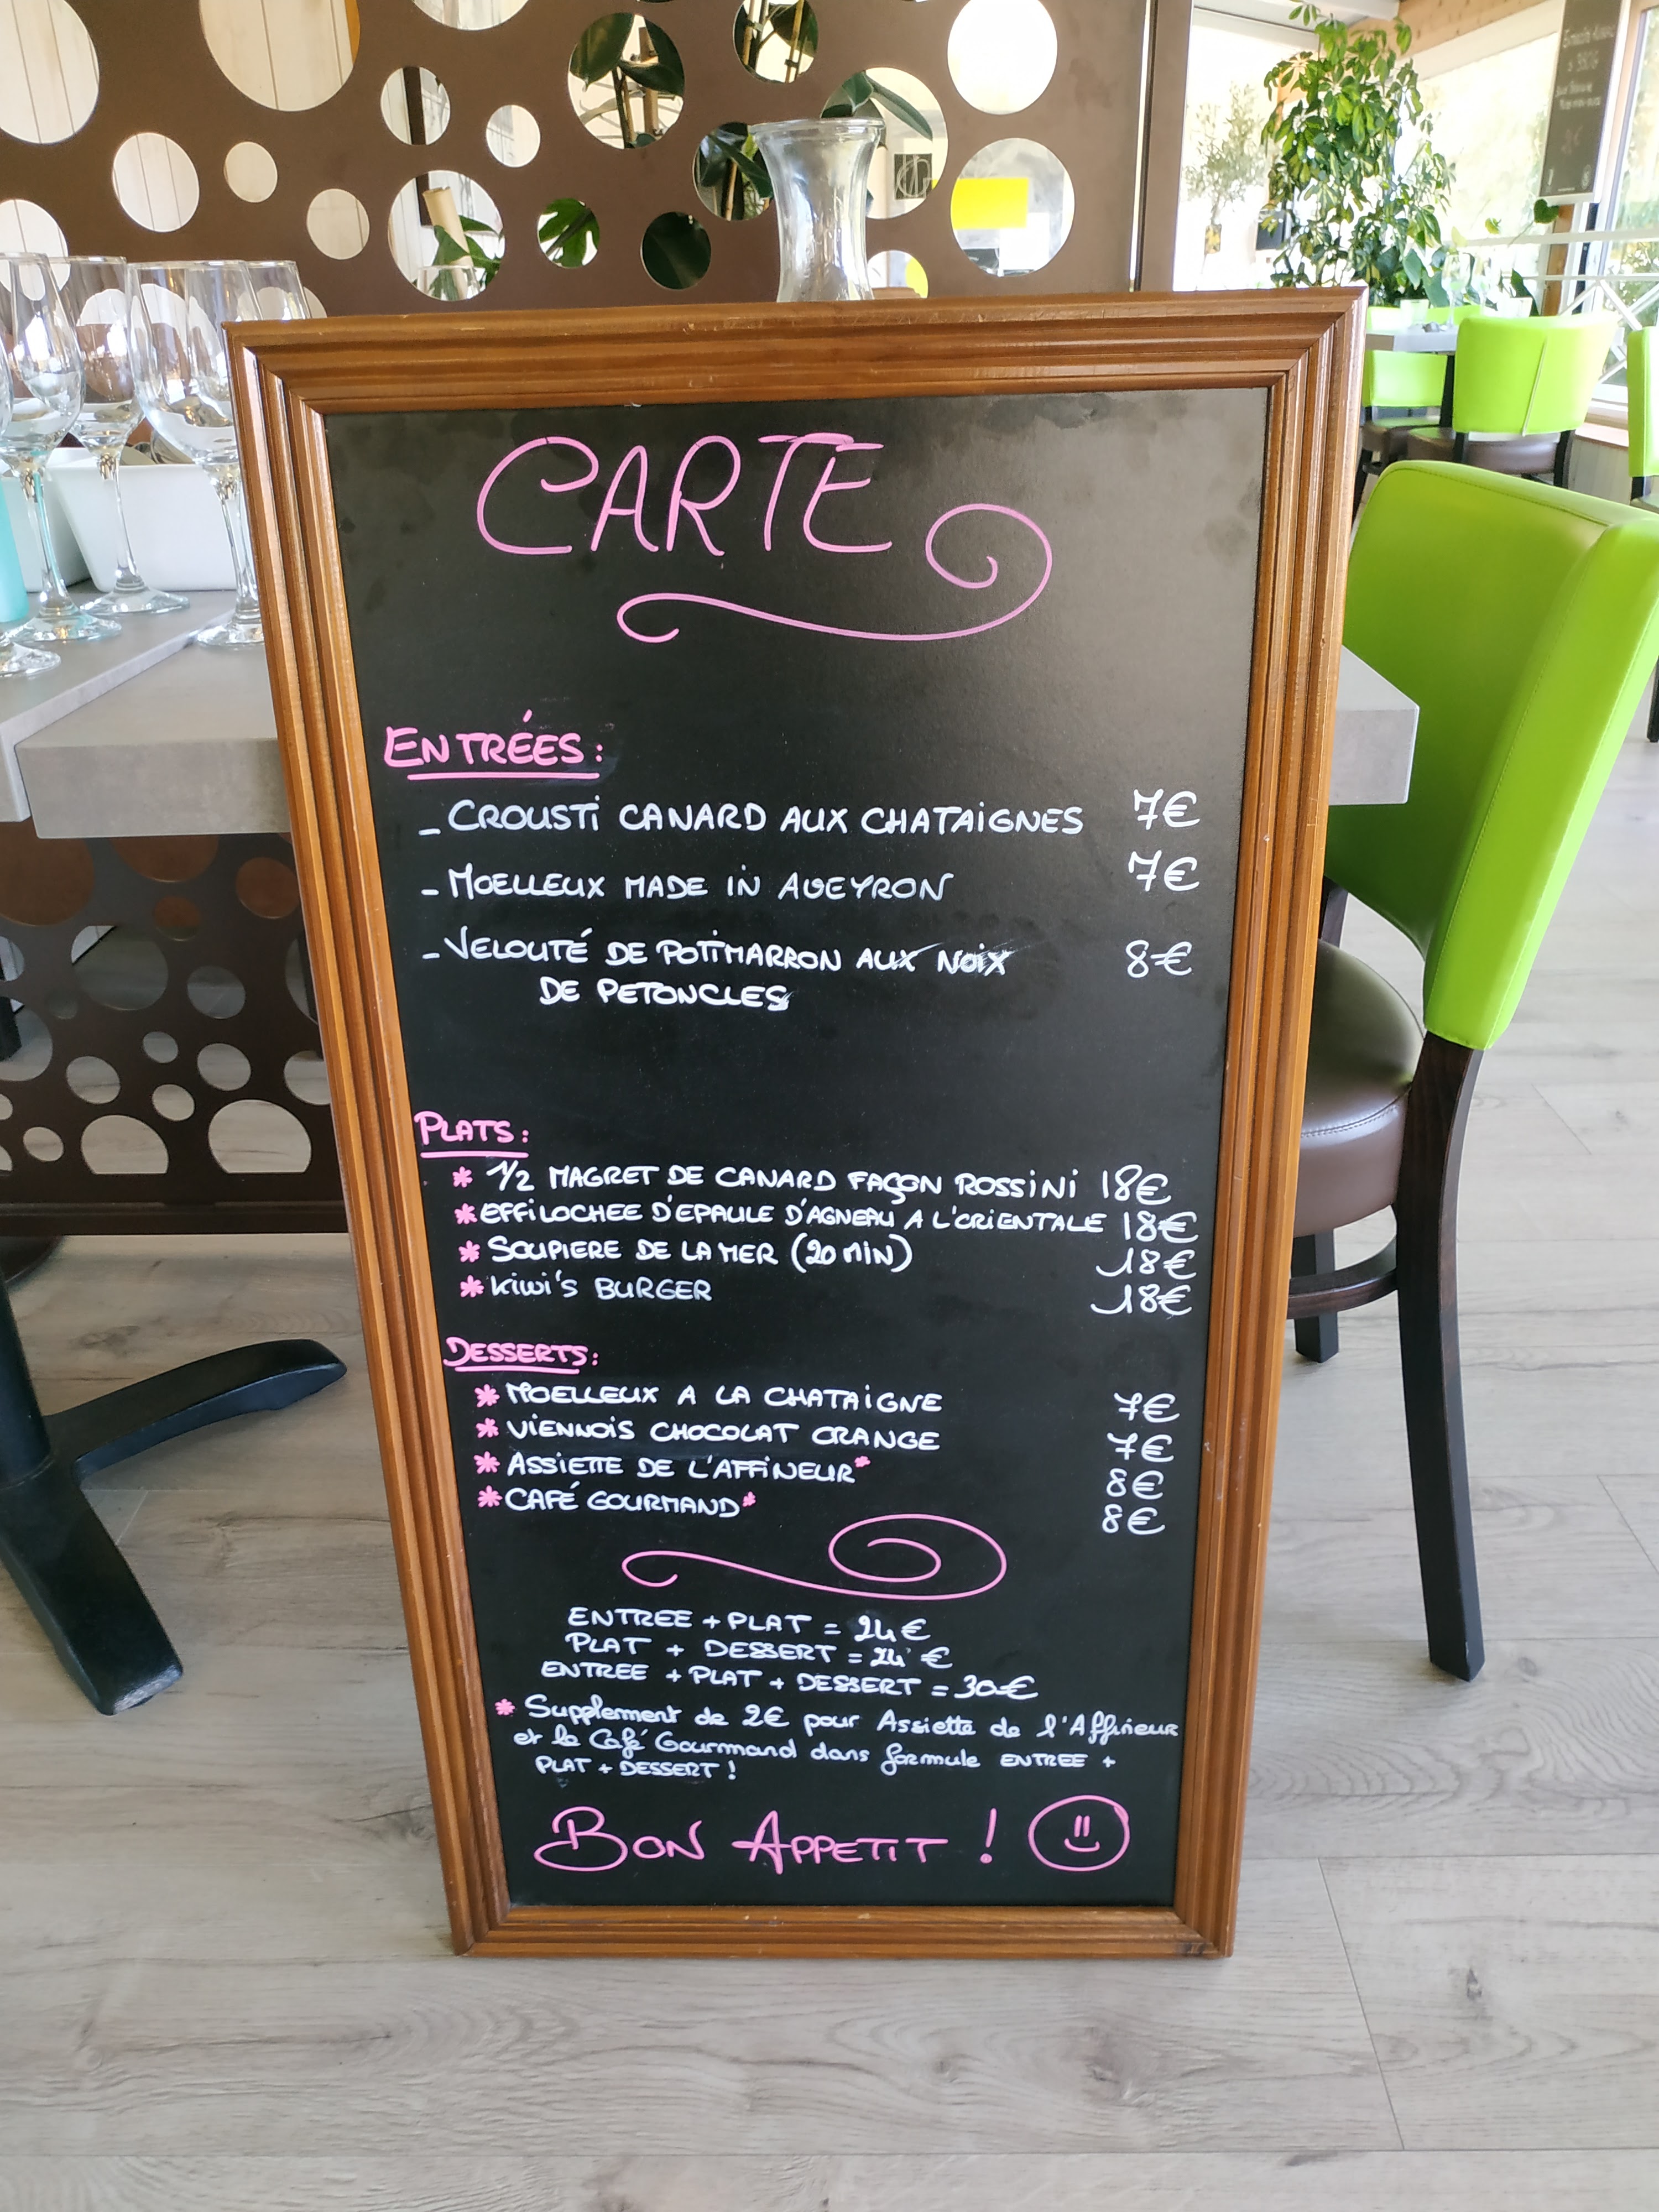 CARTE
ENTRÉES:
- CROUSTI CANARD AUX CHATAIGNES 7€
- MOELLEUX MADE IN AVEYRON 7€
- VELOUTÉ DE POTIMARRON AUX NOIX 8€
DE PETONCLES
PLATS:
* 1/2 MAGRET DE CANARD FAÇON ROSSINI 18€
* EFFILOCHEE D'EPAULE D'AGNEAU A L'ORIENTALE 18€
* SOUPIERE DE LA MER (20 MIN) 18€
* KIWI'S BURGER 18€
DESSERTS:
* MOELLEUX A LA CHATAIGNE 7€
* VIENNOIS CHOCOLAT ORANGE 7€
* ASSIETTE DE L'AFFINEUR* 8€
* CAFÉ GOURMAND* 8€
ENTREE + PLAT = 24€
PLAT + DESSERT = 24€
ENTREE + PLAT + DESSERT = 30€
* Supplement de 2€ pour Assiette de l'Affineur
et le Café Gourmand dans formule ENTREE +
PLAT + DESSERT !
BON APPETIT !